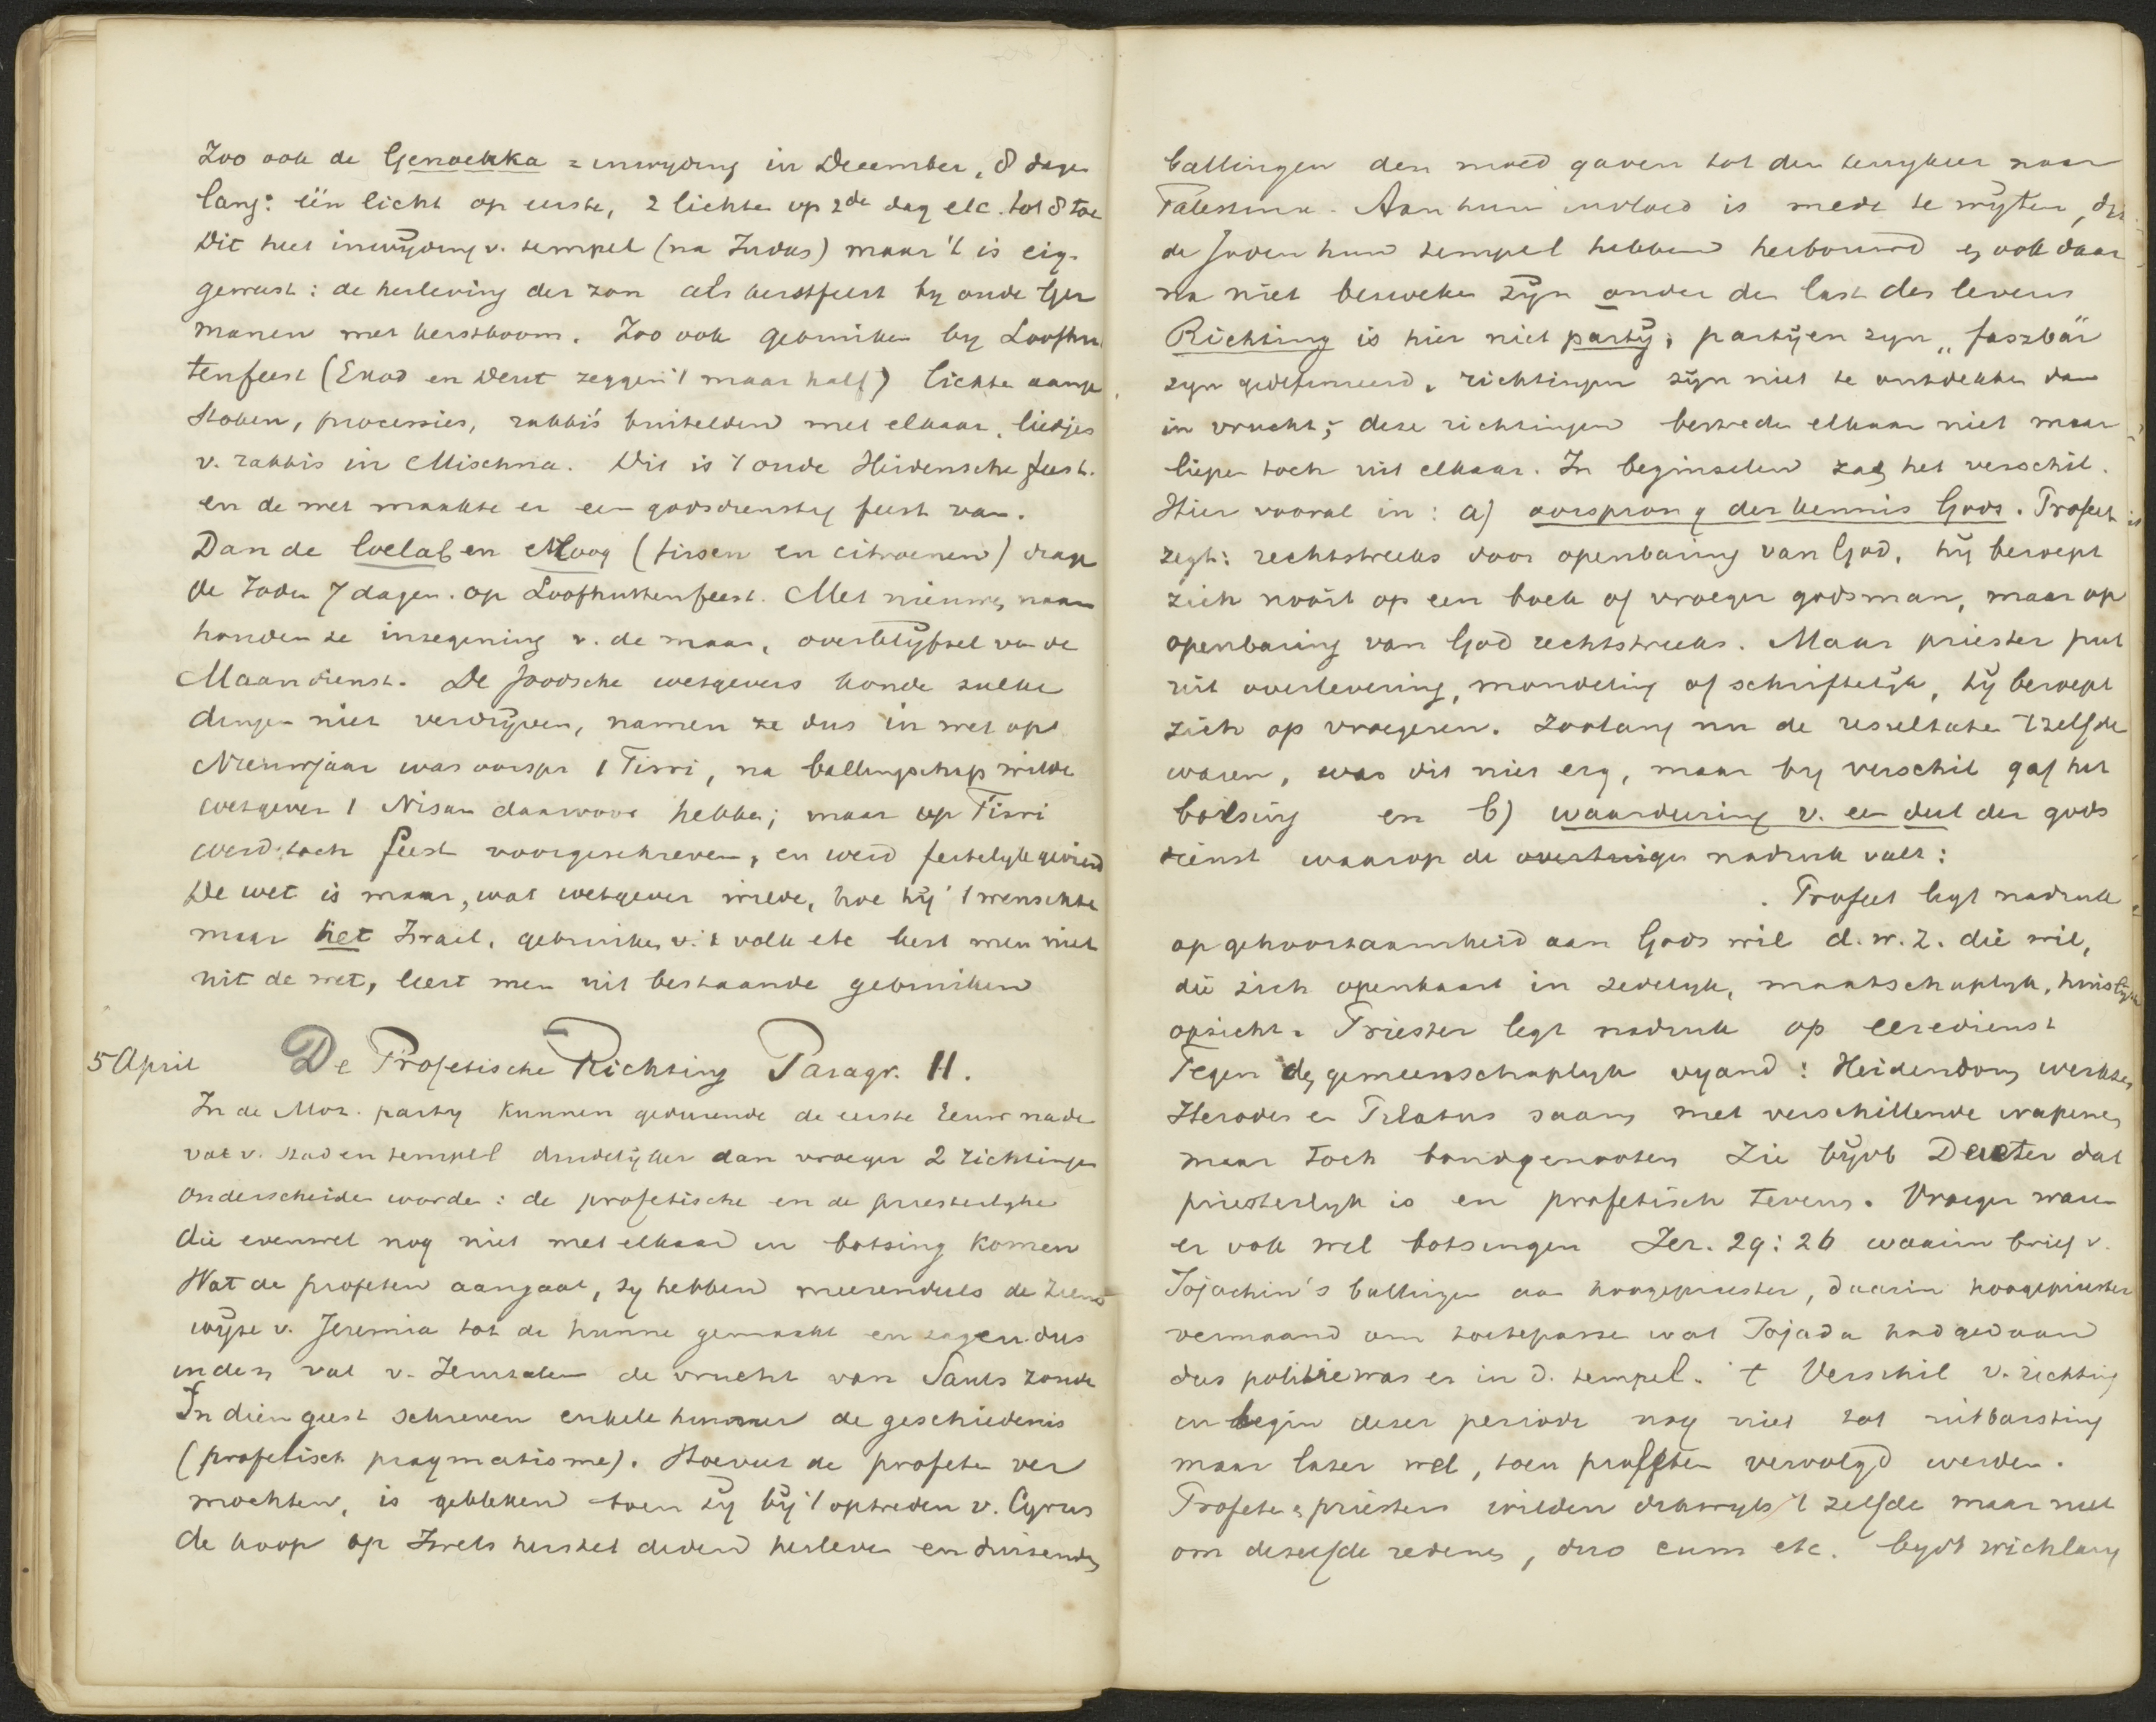 Zoo ook de Genoekka = inwyding in December, 8 dage
lang: één licht op eerste, 2 lichte op 2de dag etc. tot 8 toe
Dit heet inwyding v. tempel (na Judas) maar 't is eig.
geweest: de herleving der zon als kerstfeest by oude Ger
manen met kerstboom. Zoo ook gebruiken by Loofhu
tenfeest (Exod en Deut zeggen 't maar half) lichte aange
stoken, processies, rabbi's buitelden met elkaar, liedjes
v. rabbis in Mischna. Dit is 't oude Heidensche feest.
en de wet maakte er een godsdienstig feest van.
Dan de loelab en (tirsen en citroenen) drage
de Joden 7 dagen op Loofhuttenfeest. Met nieuwe maan
houden ze inzegening v. de maan, overblyfsel van de
Maandienst. De Joodsche wetgevers konde zulke
dingen niet verdryven, namen ze dus in wet op
Nieuwjaar was oorspr 1 Tisri, na ballingschap wilde
wetgever 1 Nisan daarvoor hebbe; maar op Tisri
werd toch feest voorgeschreven, en werd feestelyk gevierd
De wet is maar, wat wetgever wilde, hoe hy 't wenschte
maar het Israel, gebruiken v. 't volk etc leert men niet
uit de wet, leert men uit bestaande gebruiken
5 April De Profetische Richting Paragr. 11.
In de Moz. party kunnen gedurende de eerste Eeuw na de
val v. stad en tempel duidelyker dan vroeger 2 richtingen
onderscheiden worde: de profetische en de priesterlyke
die evenwel nog niet met elkaar in botsing komen
Wat de profeten aangaat, zy hebben meerendeels de ziens
wyze v. Jeremia tot de hunne gemaakt en zagen dus
in den val v. Jeruzalem de vrucht van Sauls zonde
In dien geest schreven enkele hunner de geschiedenis
(profetisch pragmatisme). Hoeveel de profete ver
mochten, is gebleken toen zy by 't optreden v. Cyrus
de hoop op Isrels herstel deden herleven en duizenden
ballingen den moed gaven tot den terugkeer naar
Palestina. Aan hun invloed is mede te wyten, dat
de Joden hun tempel hebben herbouwd en ook daar
na niet bezweken zyn onder den last des levens
Richting is hier niet party; partyen zyn „ faszbär
zyn gedefinieerd, richtingen zyn niet te ontdekken dan
in vrucht; deze richtingen bestreden elkaar niet maar
liepen toch uit elkaar. In beginselen zag het verschil.
Hier vooral in: a) oorsprong der kennis Gods. Profeet
zegt: rechtstreeks door openbaring van God. hy beroept
zich nooit op een boek of vroeger godsman, maar op
openbaring van God rechtstreeks. Maar priester put
uit overlevering, mondeling of schriftelyk, hy beroept
zich op vroegeren. Zoolang nu de resultaten 't zelfde
waren, was dit niet erg, maar by verschil gaf het
botsing en b) waardeering v. een deel der gods
dienst waarop de nadruk valt:
. Profeet legt nadruk
op gehoorzaamheid aan Gods wil d.w.z. die wil,
die zich openbaart in zedelyk, maatschaplyk, huislyk
opzicht. Priester legt nadruk op eeredienst
Tegen de gemeenschaplyk vyand: Heidendom werkten
Herodes en Pilatus saam met verschillende wapenen
maar toch bondgenooten Zie byvb Deuter dat
priesterlyk is en profetisch tevens. Vroeger waren
er ook wel botsingen Jer. 29:26 waarin brief v.
Jojachin's ballingen aan hoogepriester, daarin hoogepriester
vermaand om toetepasse wat Jojada had gedaan
dus politie was er in d. tempel. 't Verschil v. richting
in begin dezer periode nog niet tot uitbarsting
maar later wel, toen profeten vervolgd werden.
Profeten en priesters wilden dikwyls 't zelfde maar niet
om dezelfde redenen, duo cum etc. bydt wichlary